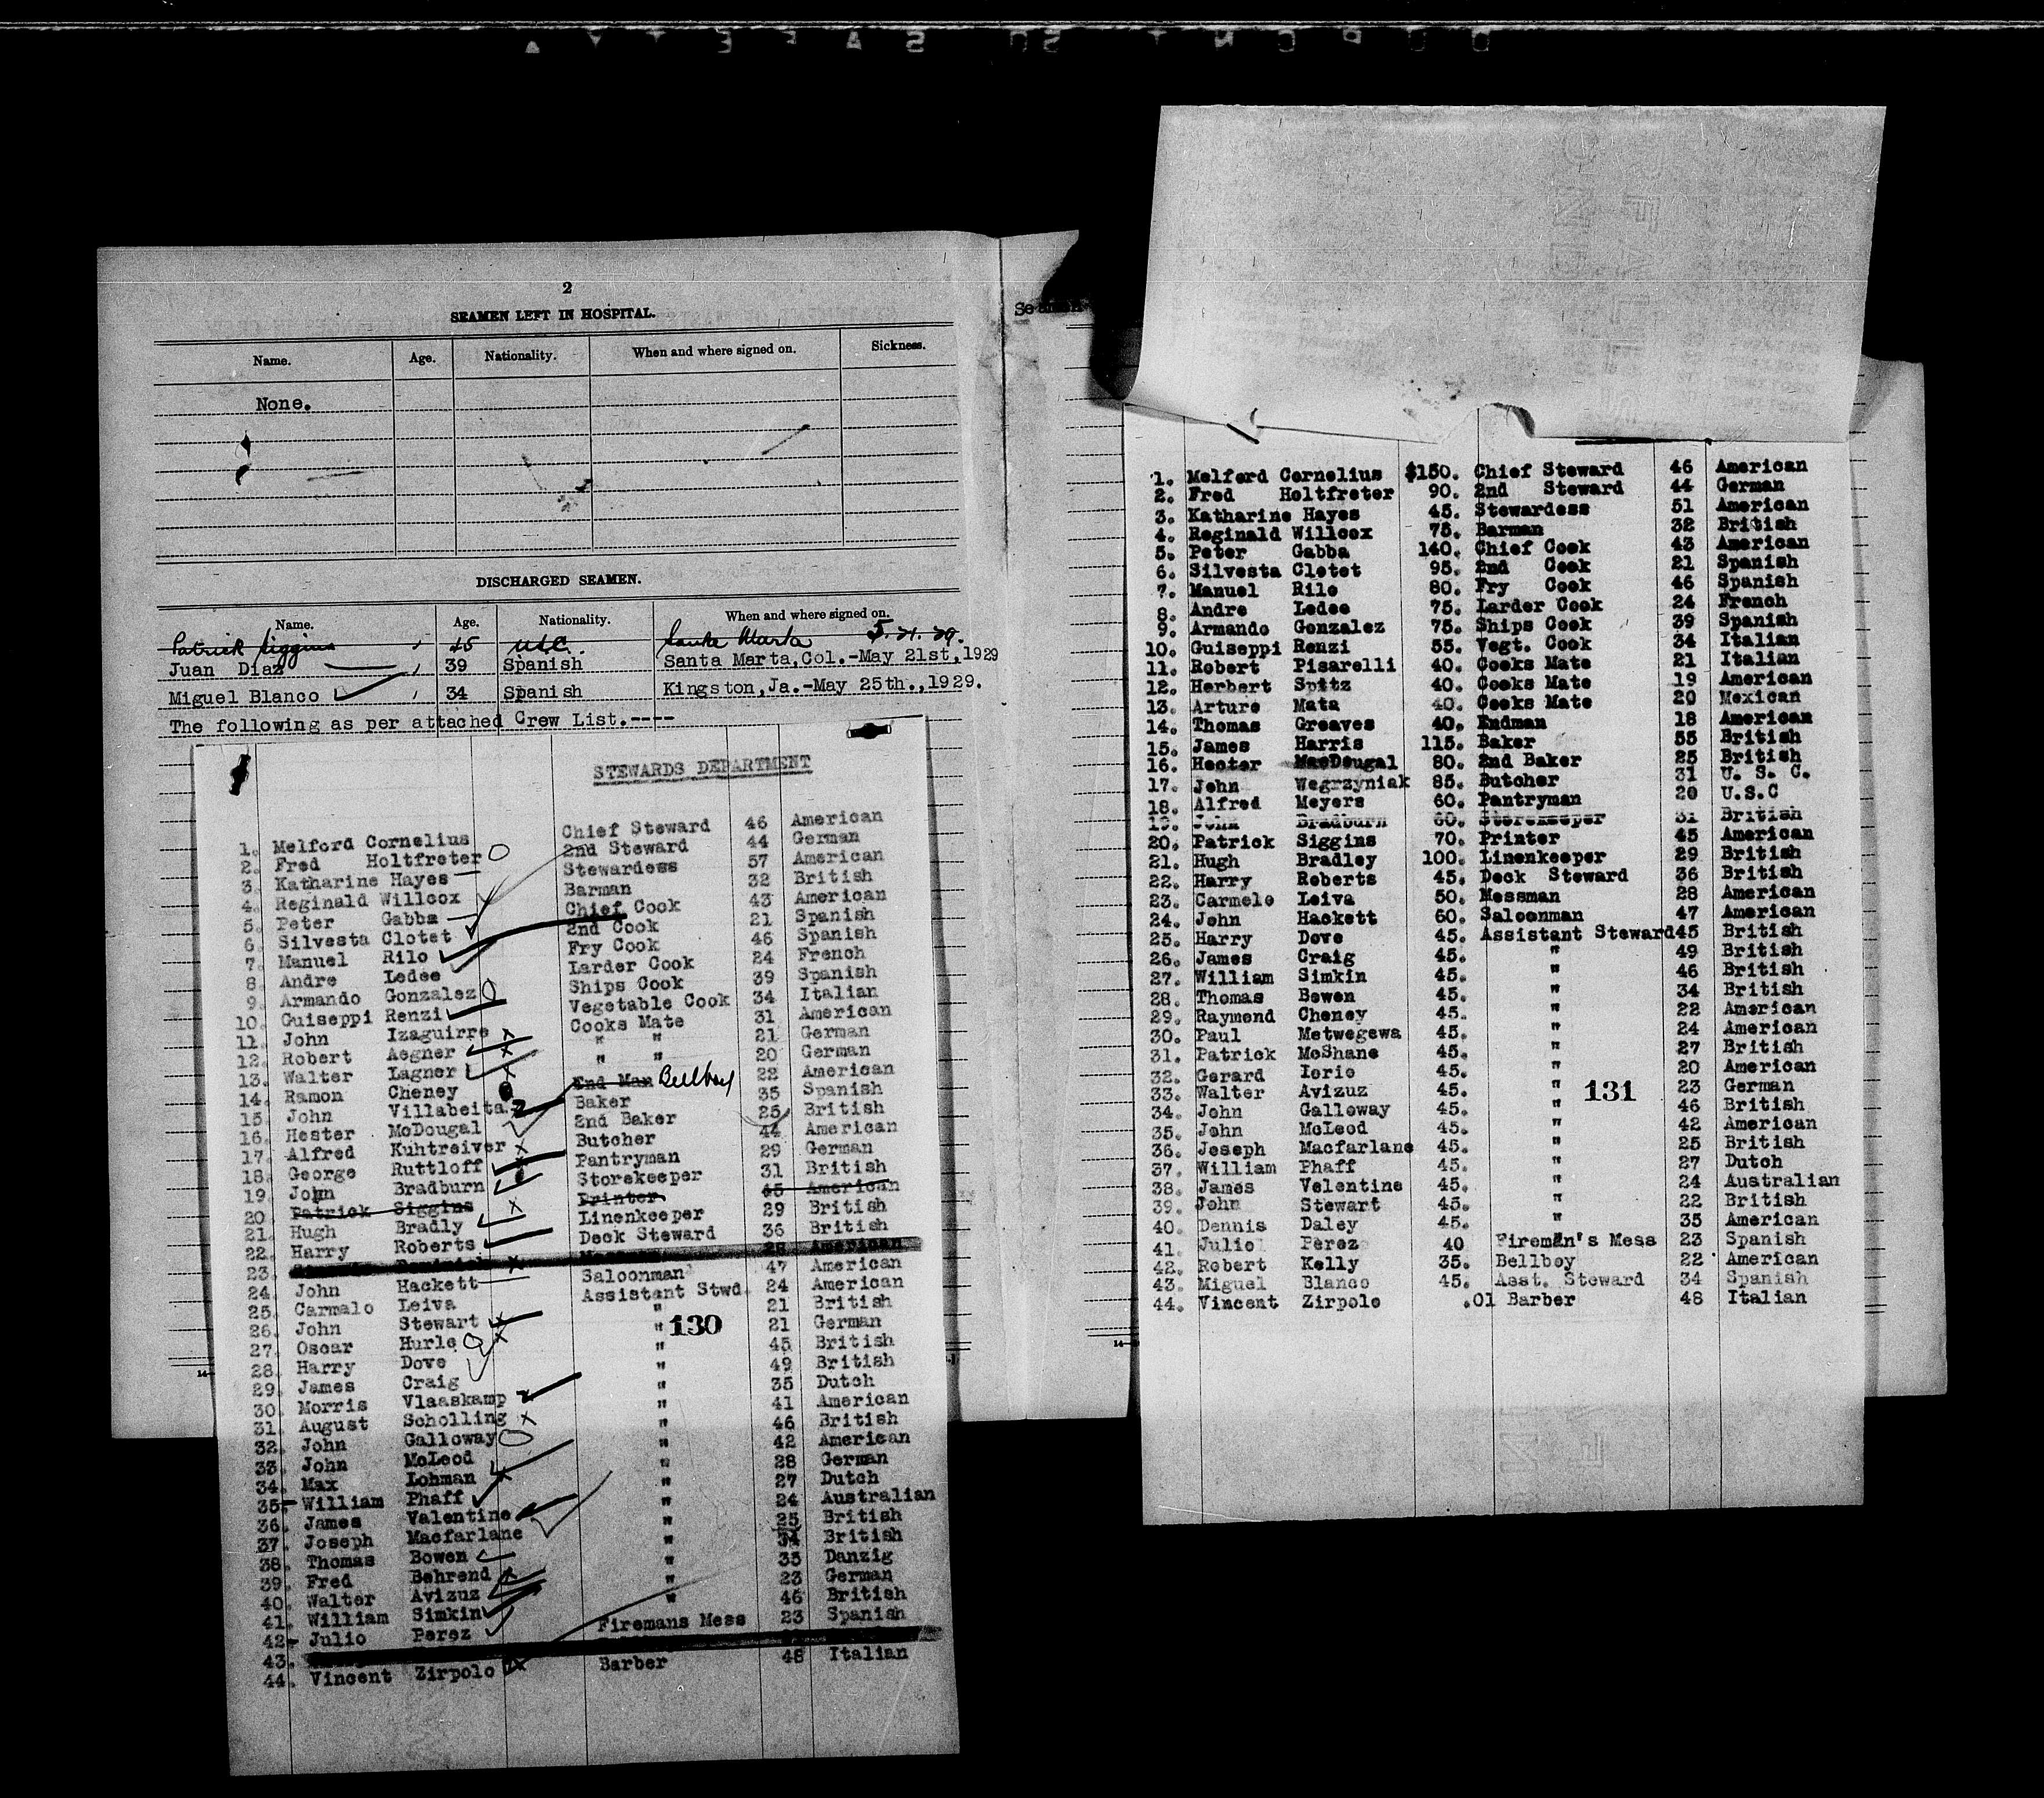 2
SEAMEN LEFT IN HOSPITAL.
Name. Age. Nationality. When and where signed on. Sickness.
None.
DISCHARGED SEAMEN.
Name. Age. Nationality. When and where signed on.
Patrick Siggins 45 USC. Santa Marta 5.21.29.
Juan Diaz 39 Spanish Santa Marta,Col.-May 21st,1929
Miguel Blanco 34 Spanish Kingston,Ja.-May 25th.,1929.
The following as per attached Crew List.----
STEWARDS DEPARTMENT
1. Melford Cornelius Chief Steward 46 American
2. Fred Holtfreter 2nd Steward 44 German
3. Katharine Hayes Stewardess 57 American
4. Reginald Willcox Barman 32 British
5. Peter Gabba Chief Cook 43 American
6. Silvesta Clotet 2nd Cook 21 Spanish
7. Manuel Rilo Fry Cook 46 Spanish
8. Andre Ledee Larder Cook 24 French
9. Armando Gonzalez Ships Cook 39 Spanish
10. Guiseppi Renzi Vegetable Cook 34 Italian
11. John Izaguirre Cooks Mate 31 American
12. Robert Aegner " " 21 German
13. Walter Lagner " " 20 German
14. Ramon Cheney End Man Bellboy 22 American
15. John Villabeita Baker 35 Spanish
16. Hester McDougal 2nd Baker 25 British
17. Alfred Kuhtreiver Butcher 44 American
18. George Ruttloff Pantryman 29 German
19. John Bradburn Storekeeper 31 British
20 Patrick Siggins Printer 45 American
21. Hugh Bradly Linenkeeper 29 British
22. Harry Roberts Deck Steward 36 British
23. 28 American
24. John Hackett Saloonman 47 American
25. Carmalo Leiva Assistant Stwd. 24 American
26. John Stewart " 21 British
27. Oscar Hurle " 21 German
28. Harry Dove " 45 British
29. James Craig " 49 British
30. Morris Vlaaskamp " 35 Dutch
31. August Scholling " 41 American
32. John Galloway " 46 British
33. John McLeod " 42 American
34. Max Lohman " 28 German
35. William Phaff " 27 Dutch
36. James Valentine " 24 Australian
37. Joseph Macfarlane " 25 British
38. Thomas Bowen " 34 British
39. Fred Behrend " 35 Danzig
40. Walter Avizuz " 23 German
41. William Simkin " 46 British
42. Julio Perez Firemans Mess 23 Spanish
43.
44. Vincent Zirpolo Barber 48 Italian
130
1. Melford Cornelius $150. Chief Steward 46 American
2. Fred Holtfreter 90. 2nd Steward 44 German
3. Katharine Hayes 45. Stewardess 51 American
4. Reginald Willcox 75. Barman 32 British
5. Peter Gabba 140. Chief Cook 43 American
6. Silvesta Clotet 95. 2nd Cook 21 Spanish
7. Manuel Rilo 80. Fry Cook 46 Spanish
8. Andre Ledee 75. Larder Cook 24 French
9. Armando Gonzalez 75. Ships Cook 39 Spanish
10. Guiseppi Renzi 55. Vegt. Cook 34 Italian
11. Robert Pisarelli 40. Cooks Mate 21 Italian
12. Herbert Spitz 40. Cooks Mate 19 American
13. Arturo Mata 40. Cooks Mate 20 Mexican
14. Thomas Greaves 40. Endman 18 American
15. James Harris 115. Baker 55 British
16. Hester MacDougal 80. 2nd Baker 25 British
17. John Wegrzyniak 85. Butcher 31 U. S. C.
18. Alfred Meyers 60. Pantryman 20 U.S.C
19. John Bradburn 60. Storekeeper 31 British
20. Patrick Siggins 70. Printer 45 American
21. Hugh Bradley 100. Linenkeeper 29 British
22. Harry Roberts 45. Deck Steward 36 British
23. Carmelo Leiva 50. Messman 28 American
24. John Hackett 60. Saloonman 47 American
25. Harry Dove 45. Assistant Steward 45 British
26. James Craig 45. " 49 British
27. William Simkin 45. " 46 British
28. Thomas Bowen 45. " 34 British
29. Raymond Cheney 45. " 22 American
30. Paul Metwegewa 45. " 24 American
31. Patrick McShane 45. " 27 British
32. Gerard Iorio 45. " 20 American
33. Walter Avizuz 45. " 23 German
34. John Galloway 45. " 46 British
35. John McLeod 45. " 42 American
36. Joseph Macfarlane 45. " 25 British
37. William Phaff 45. " 27 Dutch
38. James Valentine 45. " 24 Australian
39. John Stewart 45. " 22 British
40. Dennis Daley 45. " 35 American
41. Julio Perez 40 Fireman's Mess 23 Spanish
42. Robert Kelly 35. Bellboy 22 American
43. Miguel Blanco 45. Asst. Steward 34 Spanish
44. Vincent Zirpolo .01 Barber 48 Italian
131